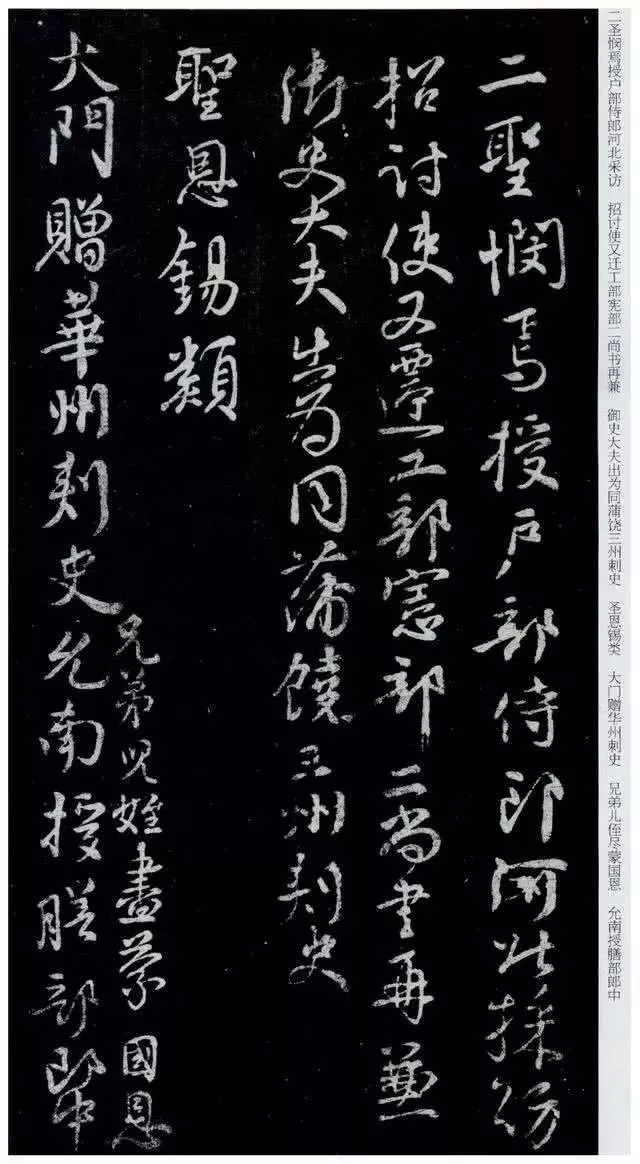 二聖憫焉授户部侍郎河北採訪
招討使又遷工部憲部二尚書再兼
御史大夫出為同蒲饒三州刺史
聖恩錫類
大門贈華州刺史
兄弟児姪盡蒙國恩
允南授膳部郎中
二圣悯焉授户部侍郎河北采访 招讨使又迁工部宪部二尚书再兼 御史大夫出为同蒲饶三州刺史 圣恩锡类 大门赠华州刺史 兄弟儿侄尽蒙国恩 允南授膳部郎中